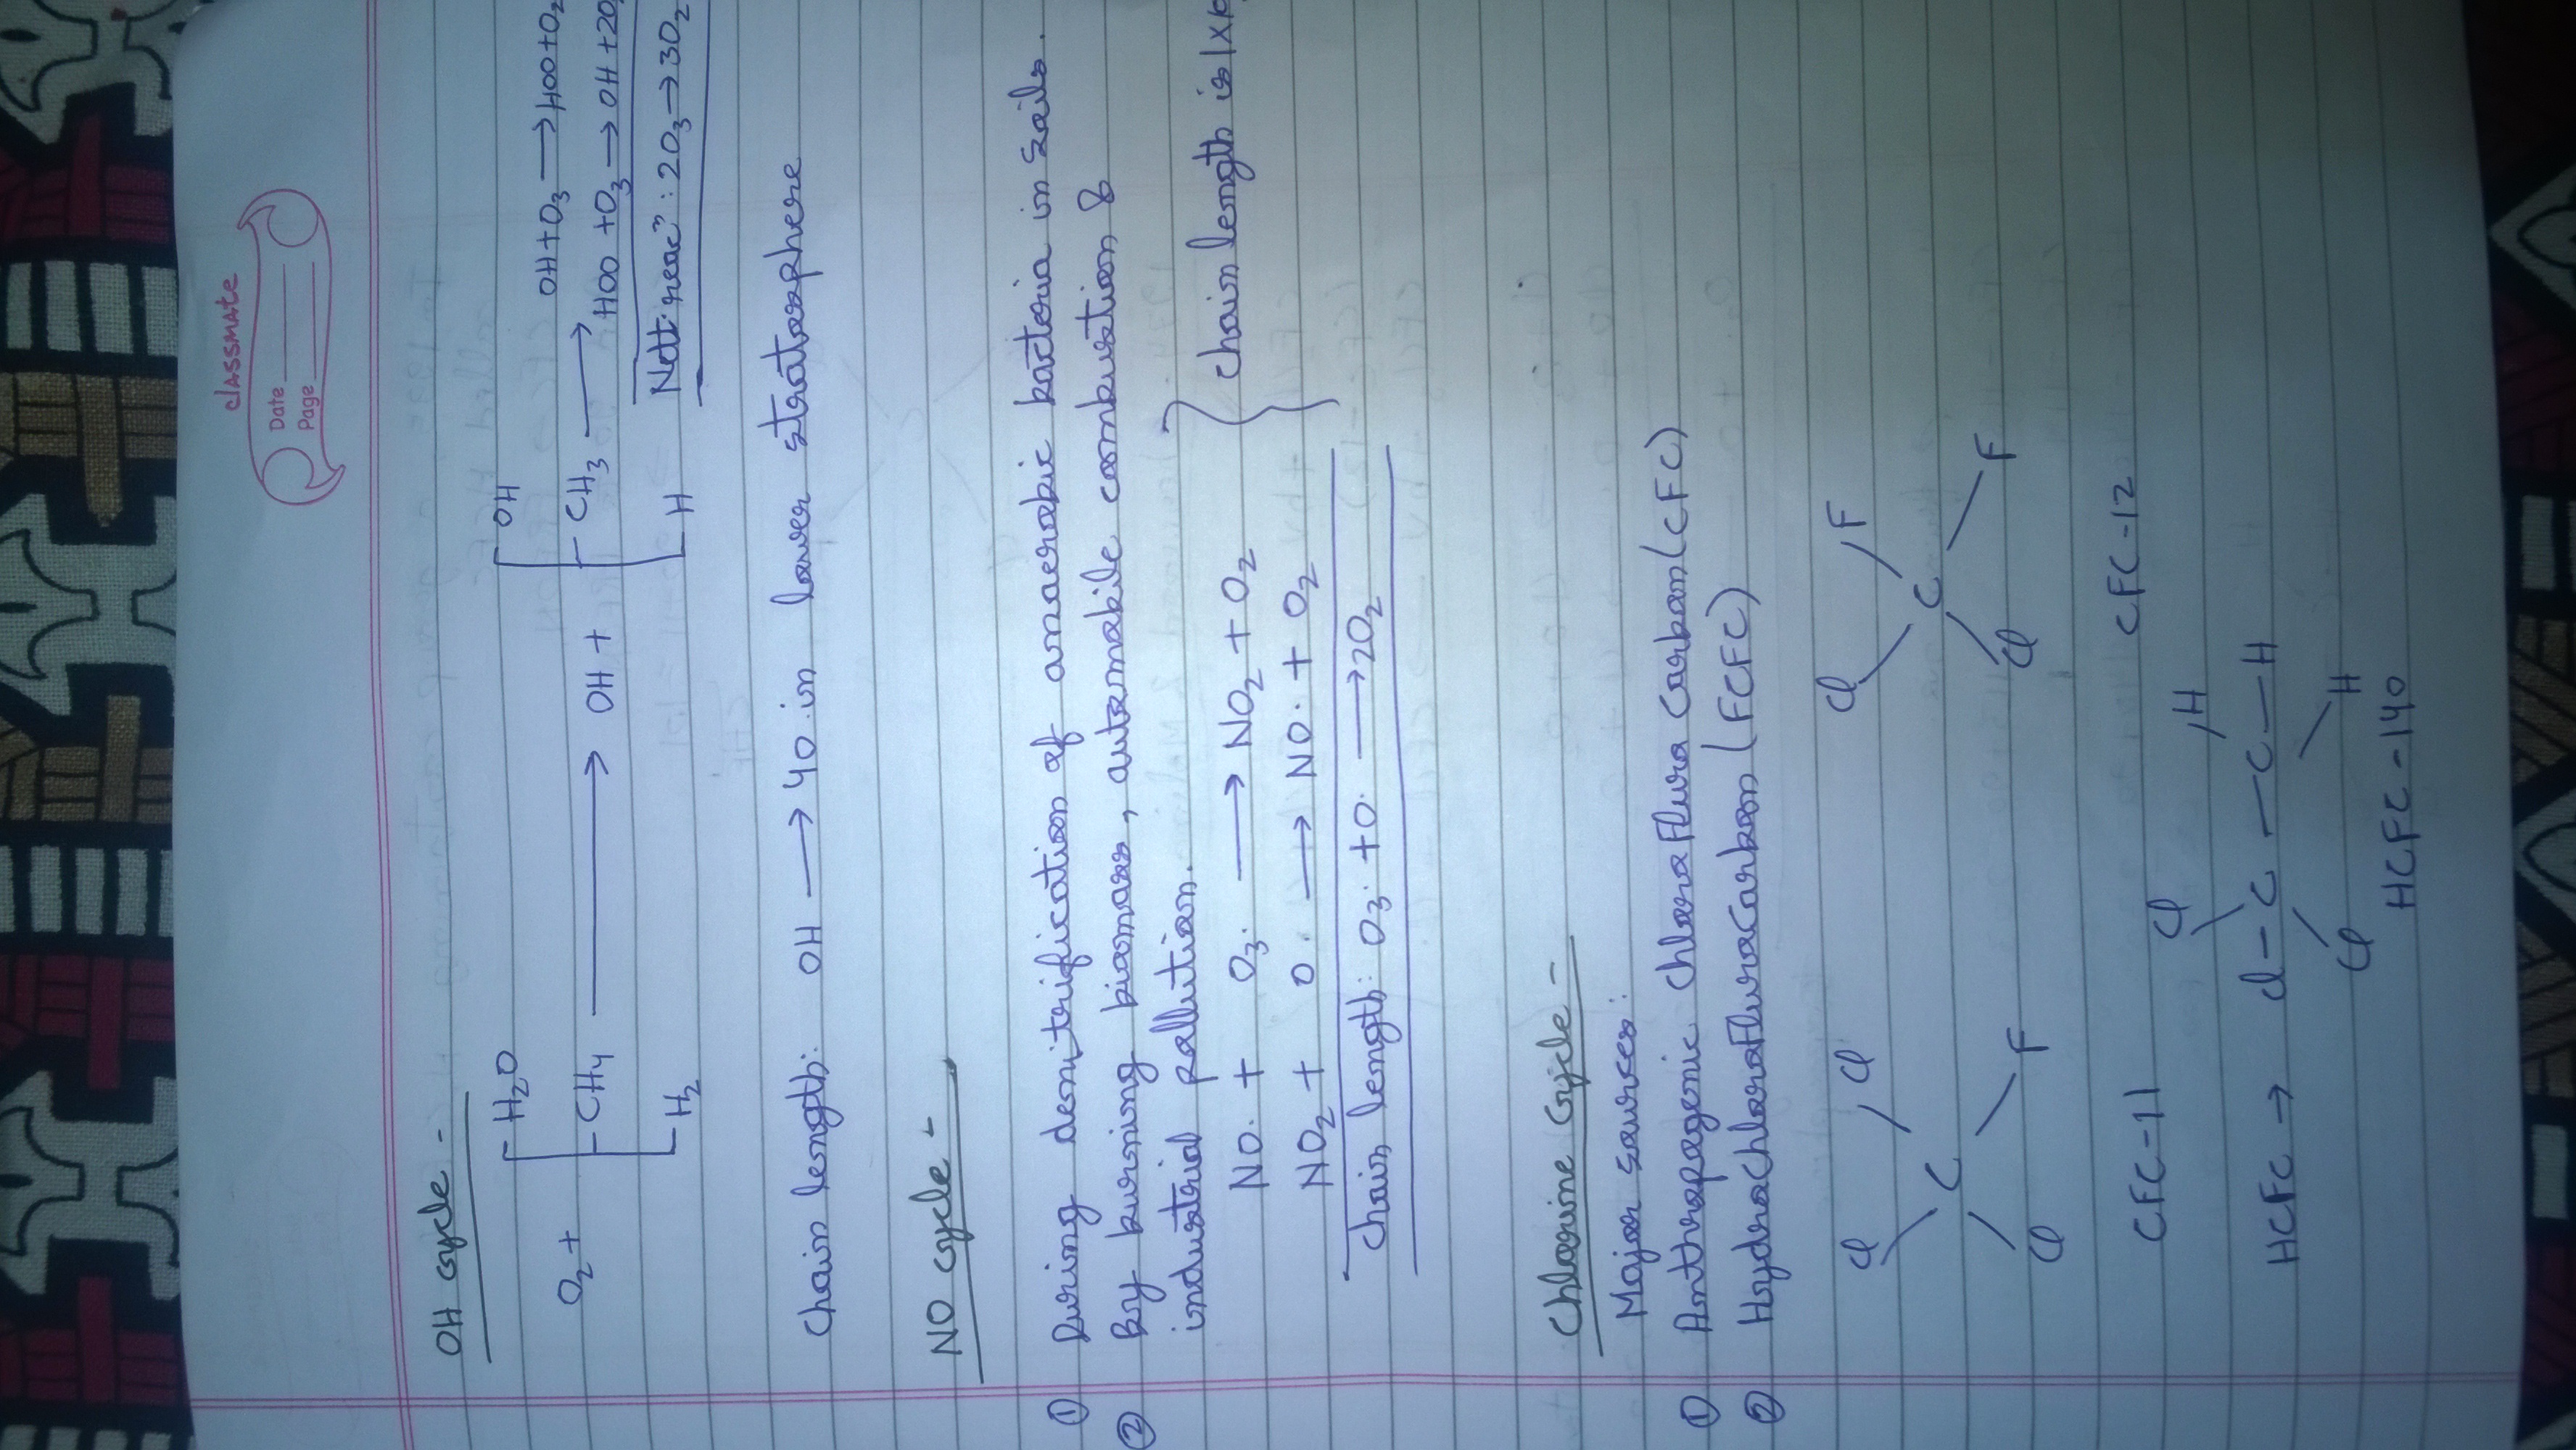 classmate
Date
Page
OH cycle -
H2O OH OH + O3 → HOO + O2
O2 + CH4 → OH + CH3 → HOO + O3 → OH + 2O
H2 H Nett. reacn : 2O3 → 3O2
Chain length: OH → 40 in lower stratosphere
NO cycle -
① During denitrification of anaerobic bacteria in soils.
② By burning biomass, automobile combustion &
industrial pollution.
NO. + O3. → NO2 + O2
NO2 + O. → NO. + O2
Chain length is 1x10
Chain length: O3. + O. → 2O2
Chlorine Cycle -
Major sources:
① Anthropogenic Chloro Fluro Carbon (CFC)
② HydroChloroFluroCarbon (FCFC)
Cl Cl Cl F
C C
Cl F Cl F
CFC-11 CFC-12
Cl H
HCFC → Cl - C - C - H
Cl H
HCFC-140